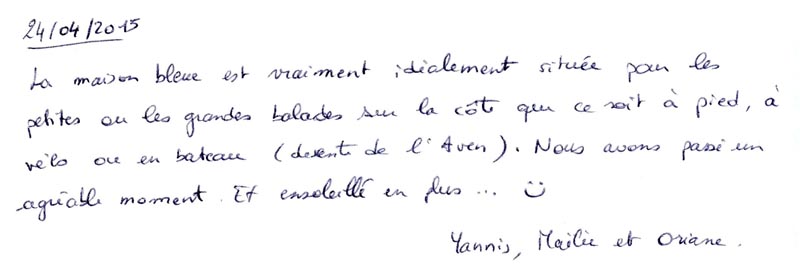 24/04/2015
La maison bleue est vraiment idéalement située pour les
petites ou les grandes balades sur la côte que ce soit à pied, à
vélo ou en bateau (descente de l'Aven). Nous avons passé un
agréable moment. Et ensoleillé en plus ... ☺
Yannis, Maïlie et Oriane.